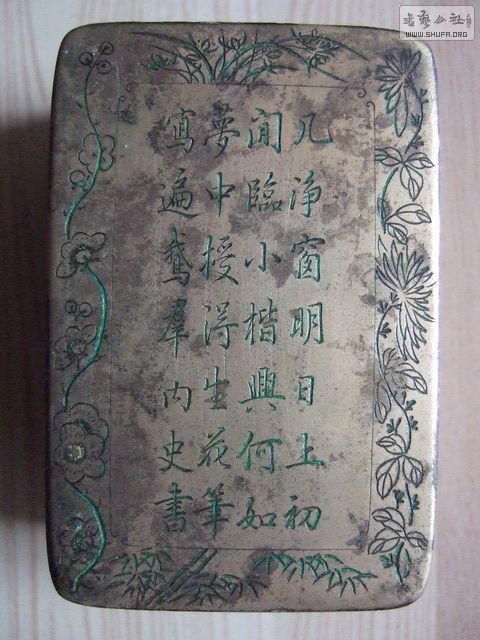 几淨窗明日上初
閒臨小楷興何如
夢中授淂生花筆
寫遍鵞羣内史書
書藝公社
WWW.SHUFA.ORG